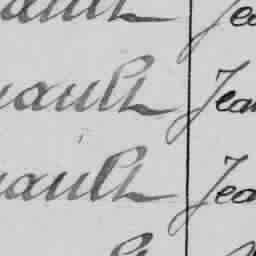 ault Jea
uault Jean
uault Jea